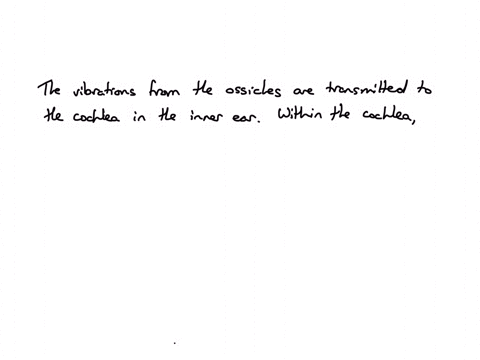 The vibrations from the ossicles are transmitted to
the cochlea in the inner ear. Within the cochlea,